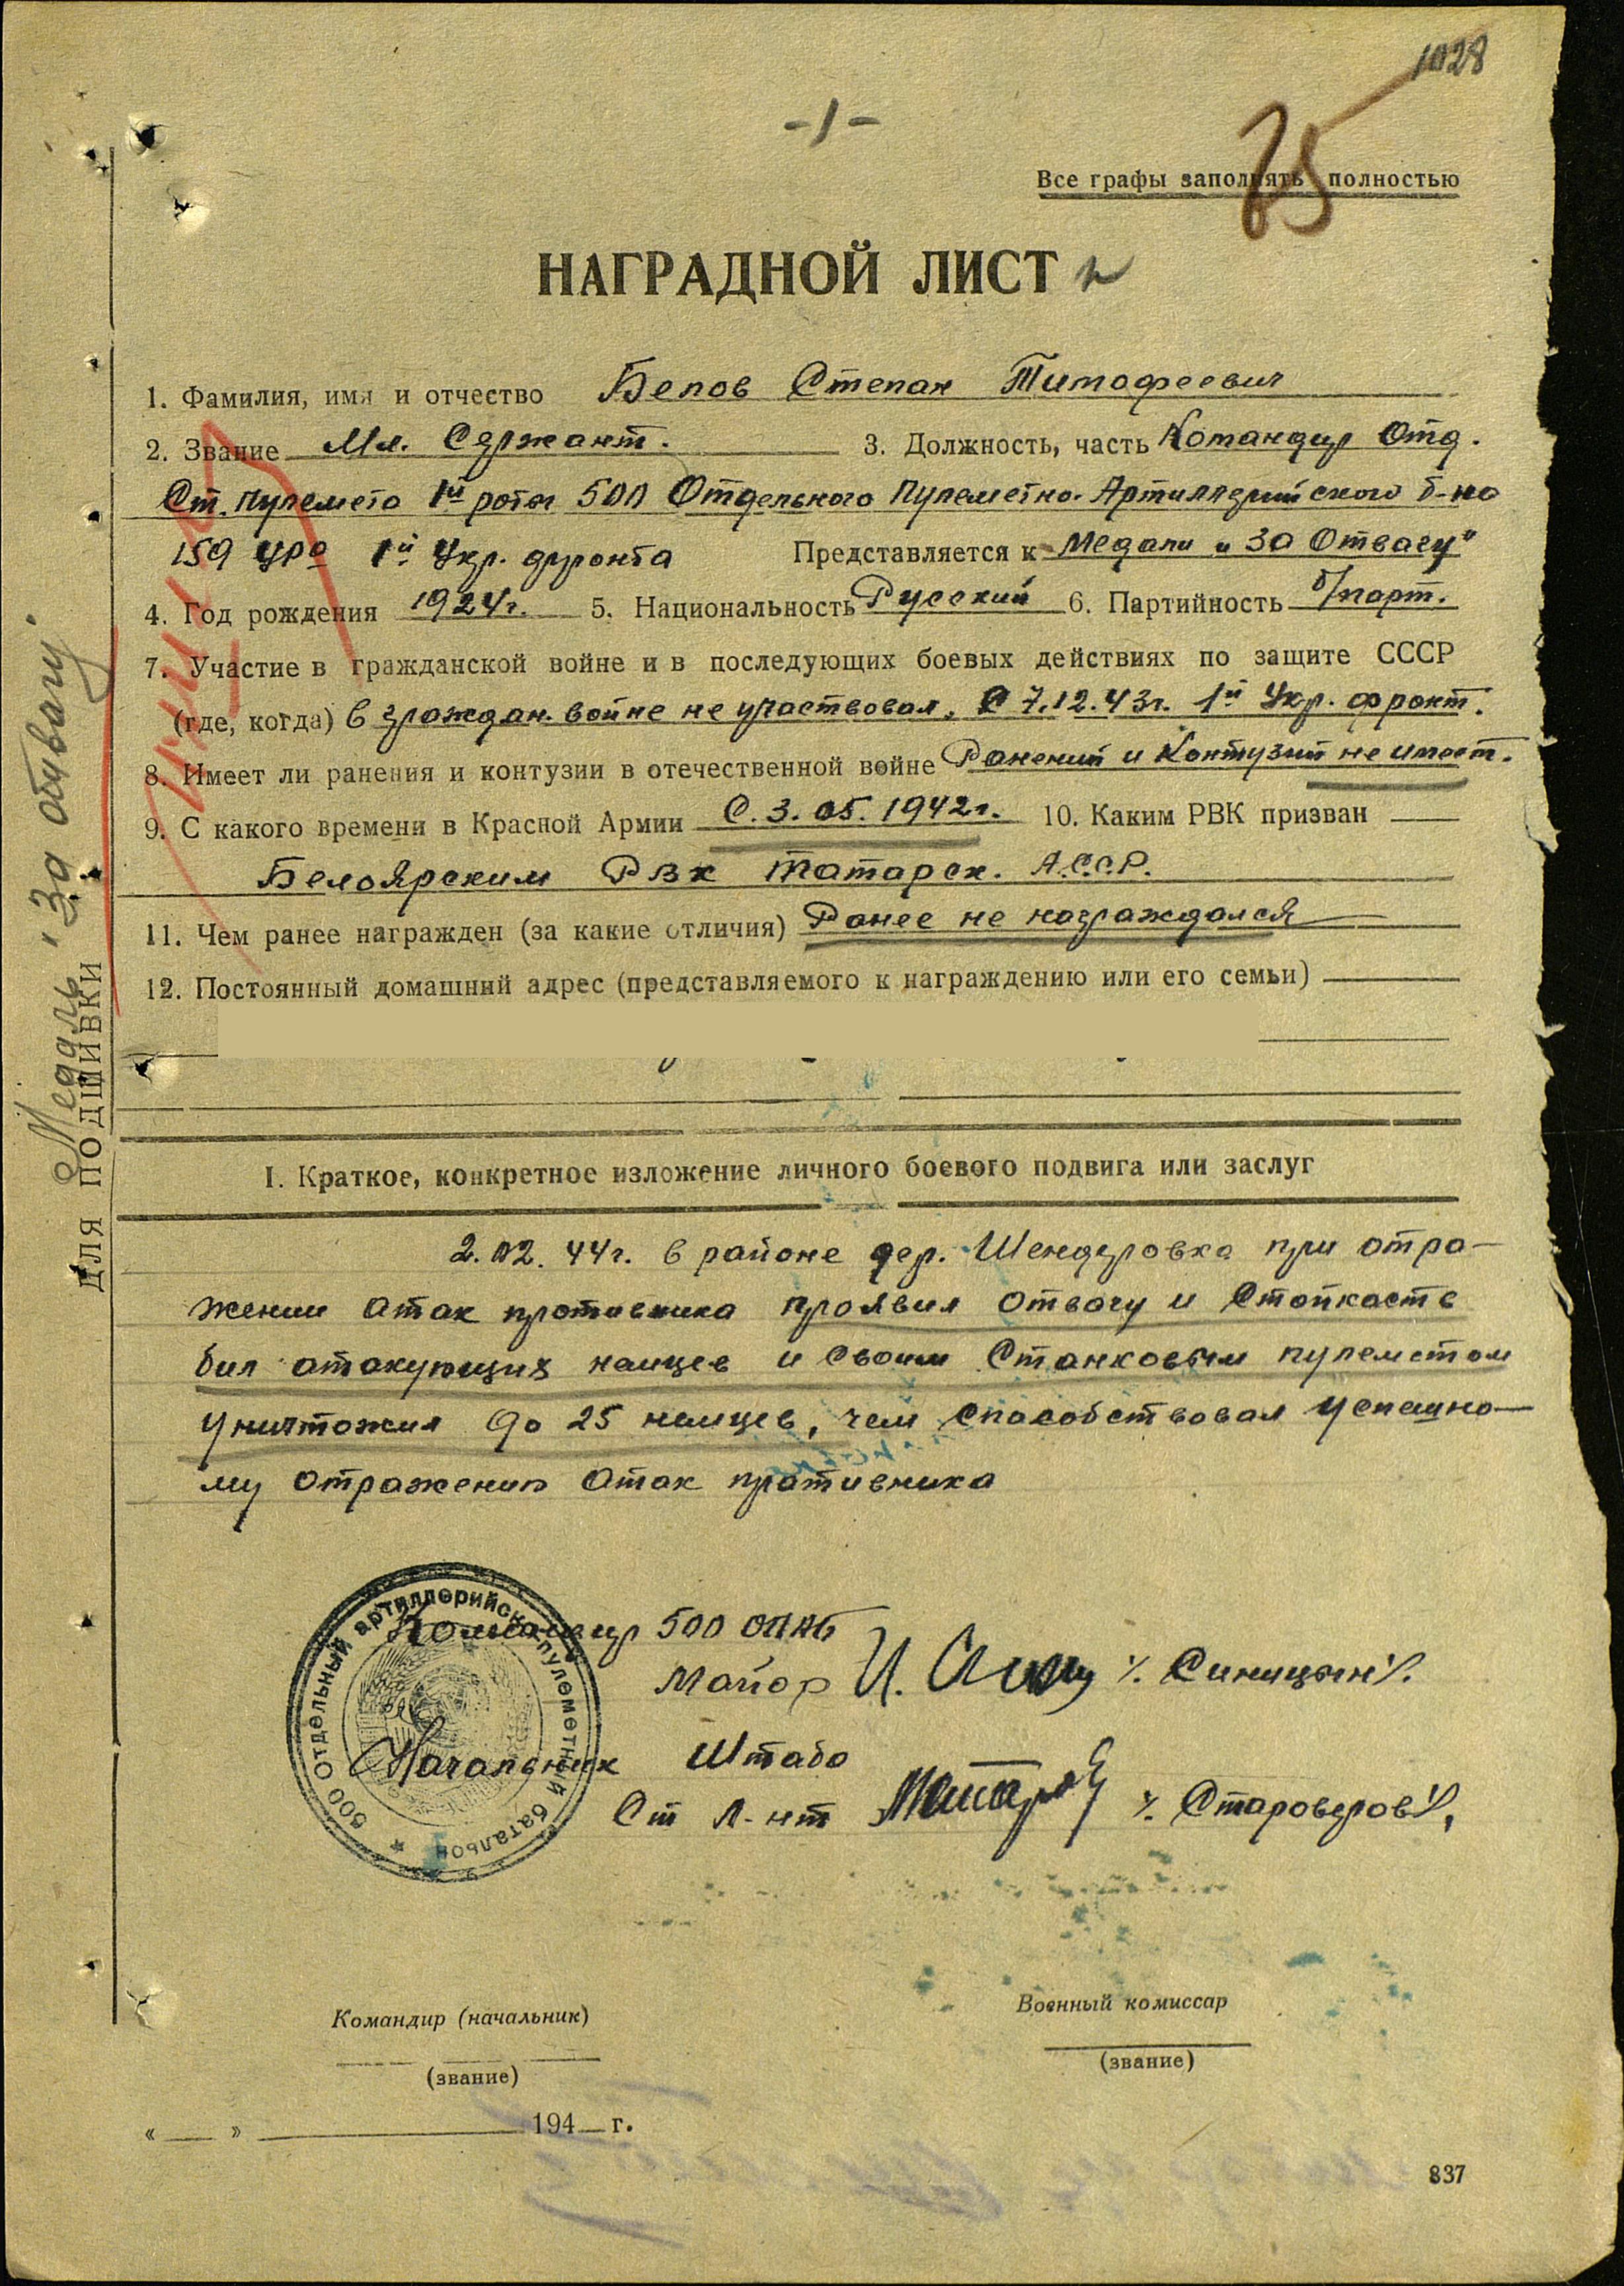 1028
-1-
85
Все графы заполнять полностью
НАГРАДНОЙ ЛИСТ
1. Фамилия, имя и отчество Белов Степан Тимофеевич
2. Звание Мл. Сержант. 3. Должность, часть Командир Отд.
Ст. пулемета 1й роты 500 Отдельного Пулеметно-Артиллерийского б-на
159 УРа 1й Укр. фронта Представляется к Медали "За Отвагу"
4. Год рождения 1924г. 5. Национальность Русский 6. Партийность б/парт.
7. Участие в гражданской войне и в последующих боевых действиях по защите СССР
(где, когда) в граждан. войне не участвовал, с 7.12.43г. 1й Укр. фронт.
8. Имеет ли ранения и контузии в отечественной войне Ранений и Контузий не имеет.
9. С какого времени в Красной Армии С 3.05.1942г. 10. Каким РВК призван
Белоярским РВК Татарск. А.С.С.Р.
11. Чем ранее награжден (за какие отличия) Ранее не награждался
12. Постоянный домашний адрес (представляемого к награждению или его семьи)
ДЛЯ ПОДШИВКИ
Медаль "За отвагу"
I. Краткое, конкретное изложение личного боевого подвига или заслуг
2.02.44г. в районе дер. Шендеровка при отра-
жении атак противника проявил отвагу и Стойкасть
бил атакующих немцев и своим Станковым пулеметом
уничтожил до 25 немцев, чем способствовал успешно-
му отражению атак противника
500 отдельный артиллерийск. пулеметный батальон
Командир 500 ОПАБ
Майор /Синицын/.
Начальник Штаба
Ст Л-нт /Староверов/,
Командир (начальник)
Военный комиссар
(звание)
(звание)
« » 194 г.
837